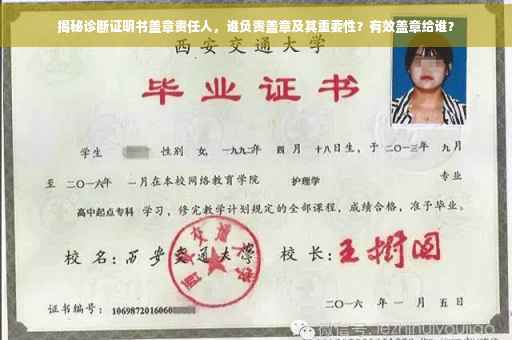 揭秘诊断证明书盖章责任人，谁负责盖章及其重要性？有效盖章给谁？
西安交通大学
毕业证书
学生 性别 女, 一九九二年 四月 十八日生, 于二〇一三年 九月
至 二〇一六年 一月在本校网络教育学院 护理学 专业
高中起点专科 学习, 修完教学计划规定的全部课程, 成绩合格, 准予毕业。
校 名: 西安交通大学 校 长: 王树国
西安交通大学
证书编号: 1069872016060
二〇一六 年 一 月 五 日
微信号: jezhihuiyoujiao